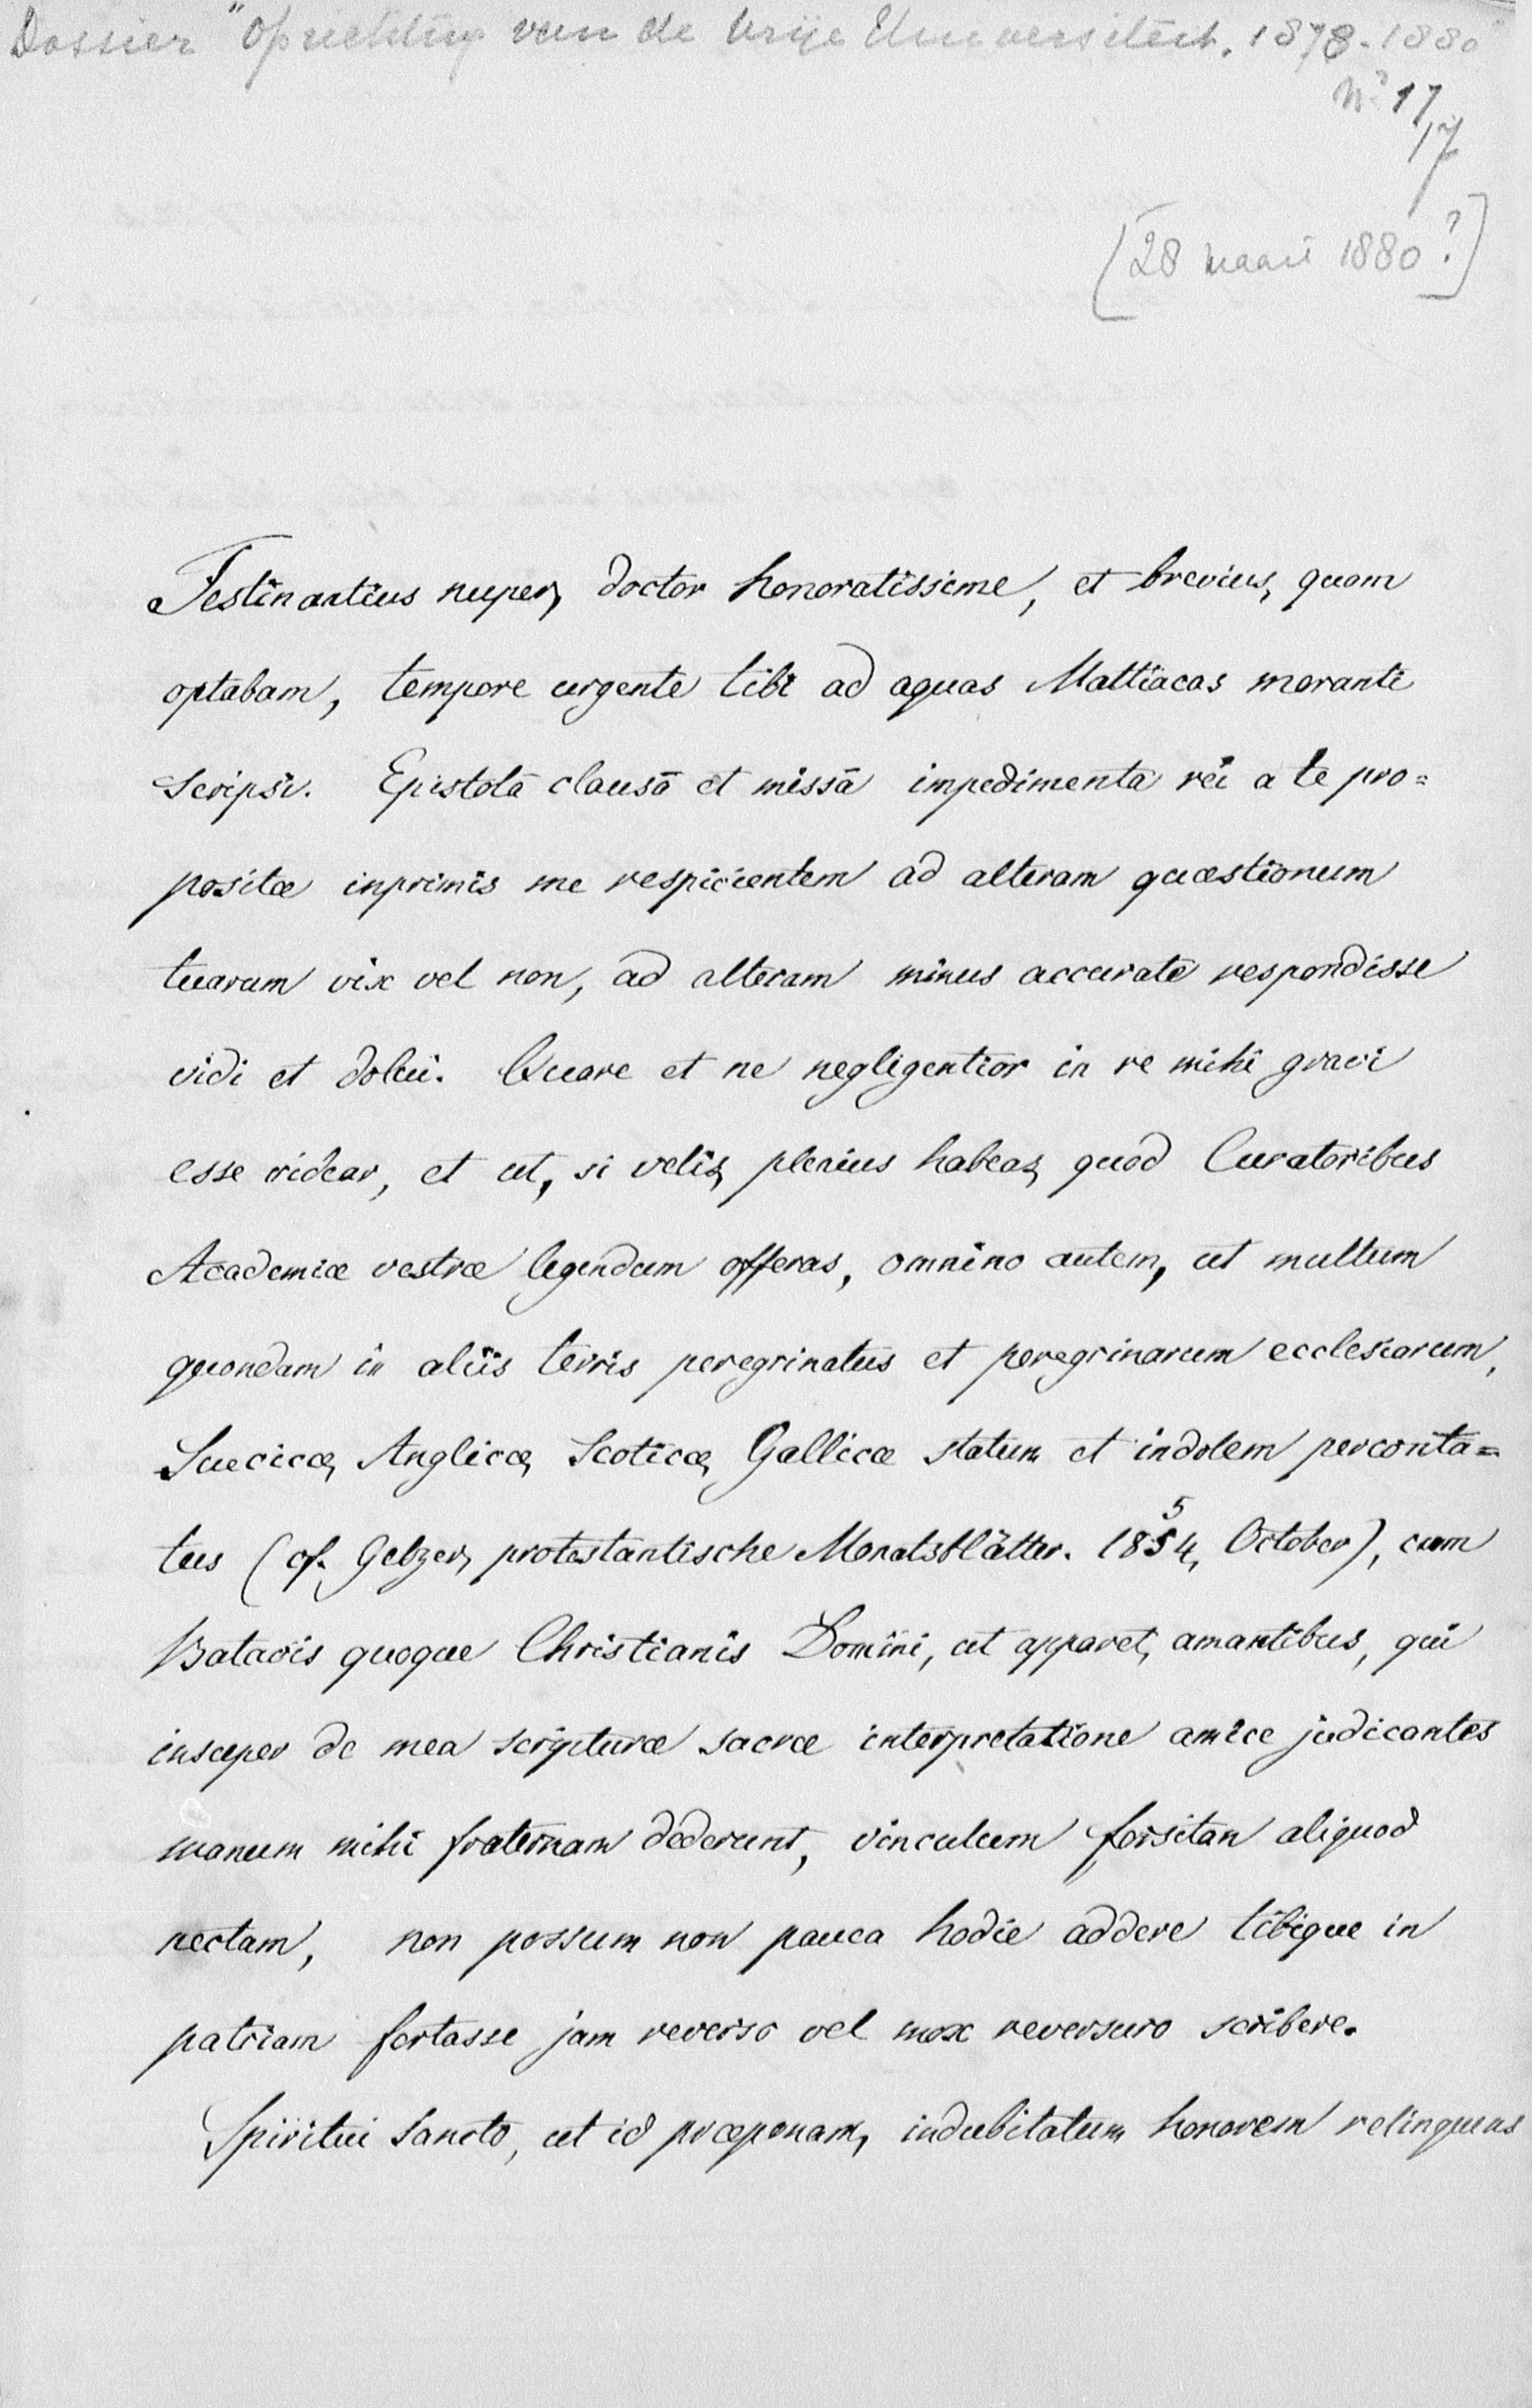 Dossier "Oprichting van de Vrije Universiteit. 1878-1880"
No 17
17
[28 maart 1880?]
Festinantius nuper, doctor honoratissime, et brevius, quam
optabam, tempore urgente tibi ad aquas Mattiacas moranti
scripsi. Epistolā clausā et missā impedimenta rei a te pro=
positæ inprimis me respicientem ad alteram quæstionum
tuarum vix vel non, ad alteram minus accurate respondisse
vidi et dolui. Quare et ne negligentior in re mihi gravi
esse videar, et ut, si velis, plenius habeas, quod Curatoribus
Academiæ vestræ legendum offeras, omnino autem, ut multum
quondam in aliis terris peregrinatus et peregrinarum ecclesiarum,
Suecicæ, Anglicæ, Scoticæ, Gallicæ statum et indolem perconta=
tus (cf. Gelzer, protestantische Monatsblätter. 1854, October), cum
5
Batavis quoque Christianis Domini, ut apparet, amantibus, qui
insuper de mea scripturæ sacræ interpretatione amice judicantes
manum mihi fraternam dederunt, vinculum forsitan aliquod
nectam, non possum non pauca hodie addere tibique in
patriam fortasse jam reverso vel mox reversuro scribere.
Spiritui Sancto, ut id præponam, indubitatum honorem relinquens